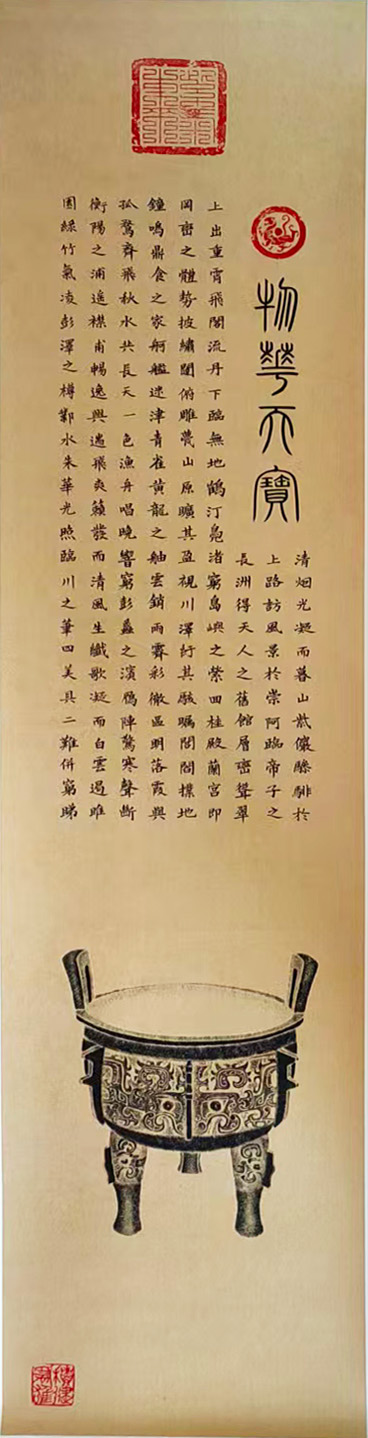 物華天寶
清烟光凝而暮山紫儼驂騑於
上路訪風景於崇阿臨帝子之
長洲得天人之舊館層巒聳翠
上出重霄飛閣流丹下臨無地鶴汀鳧渚窮島嶼之縈回桂殿蘭宮即
岡巒之體勢披繡闥俯雕甍山原曠其盈視川澤紆其駭矚閭閻撲地
鐘鳴鼎食之家舸艦迷津青雀黃龍之舳雲銷雨霽彩徹區明落霞與
孤鶩齊飛秋水共長天一色漁舟唱晚響窮彭蠡之濱鴈陣驚寒聲斷
衡陽之浦遙襟甫暢逸興遄飛爽籟發而清風生纖歌凝而白雲遏睢
園綠竹氣凌彭澤之樽鄴水朱華光照臨川之筆四美具二難併窮睇